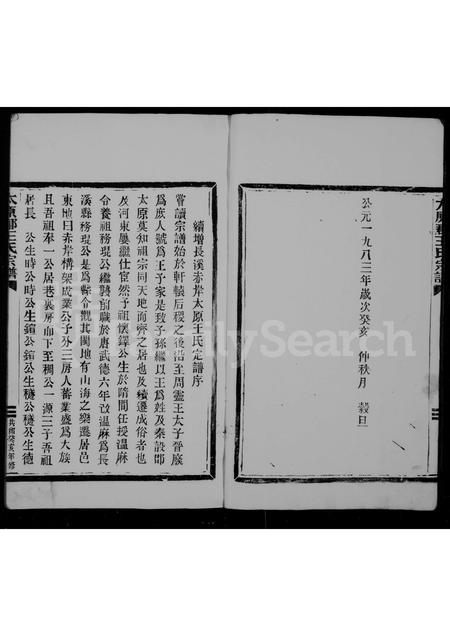 太原郡王氏宗譜
公元一九八三年歲次癸亥 仲秋月 穀旦
續增長溪赤岸太原王氏宗譜序
嘗讀宗譜始於軒轅后稷之後沿至周靈王太子晉廢
為庶人號為王子家是致子孫繼以王為姓及秦設郡
太原莫知祖宗同天地而齊之居也及續遷成俗者也
及河東屢繼仕宦然予祖懷鐸公生於隋間任授溫麻
令養祖務琨公繼襲前職於唐武德六年改溫麻為長
溪縣務琨公是為縣令觀其閩地有山海之樂遷居邑
東地曰赤岸構架成業公子外三房人蕃業盛為大族
且吾祖奉一公居巷裏房而下至稠公一源三子吾祖
居長 公生時公時公生鎔公鎔公生穟公穟公生德
太原郡王氏宗譜
共和癸亥年修
FamilySearch